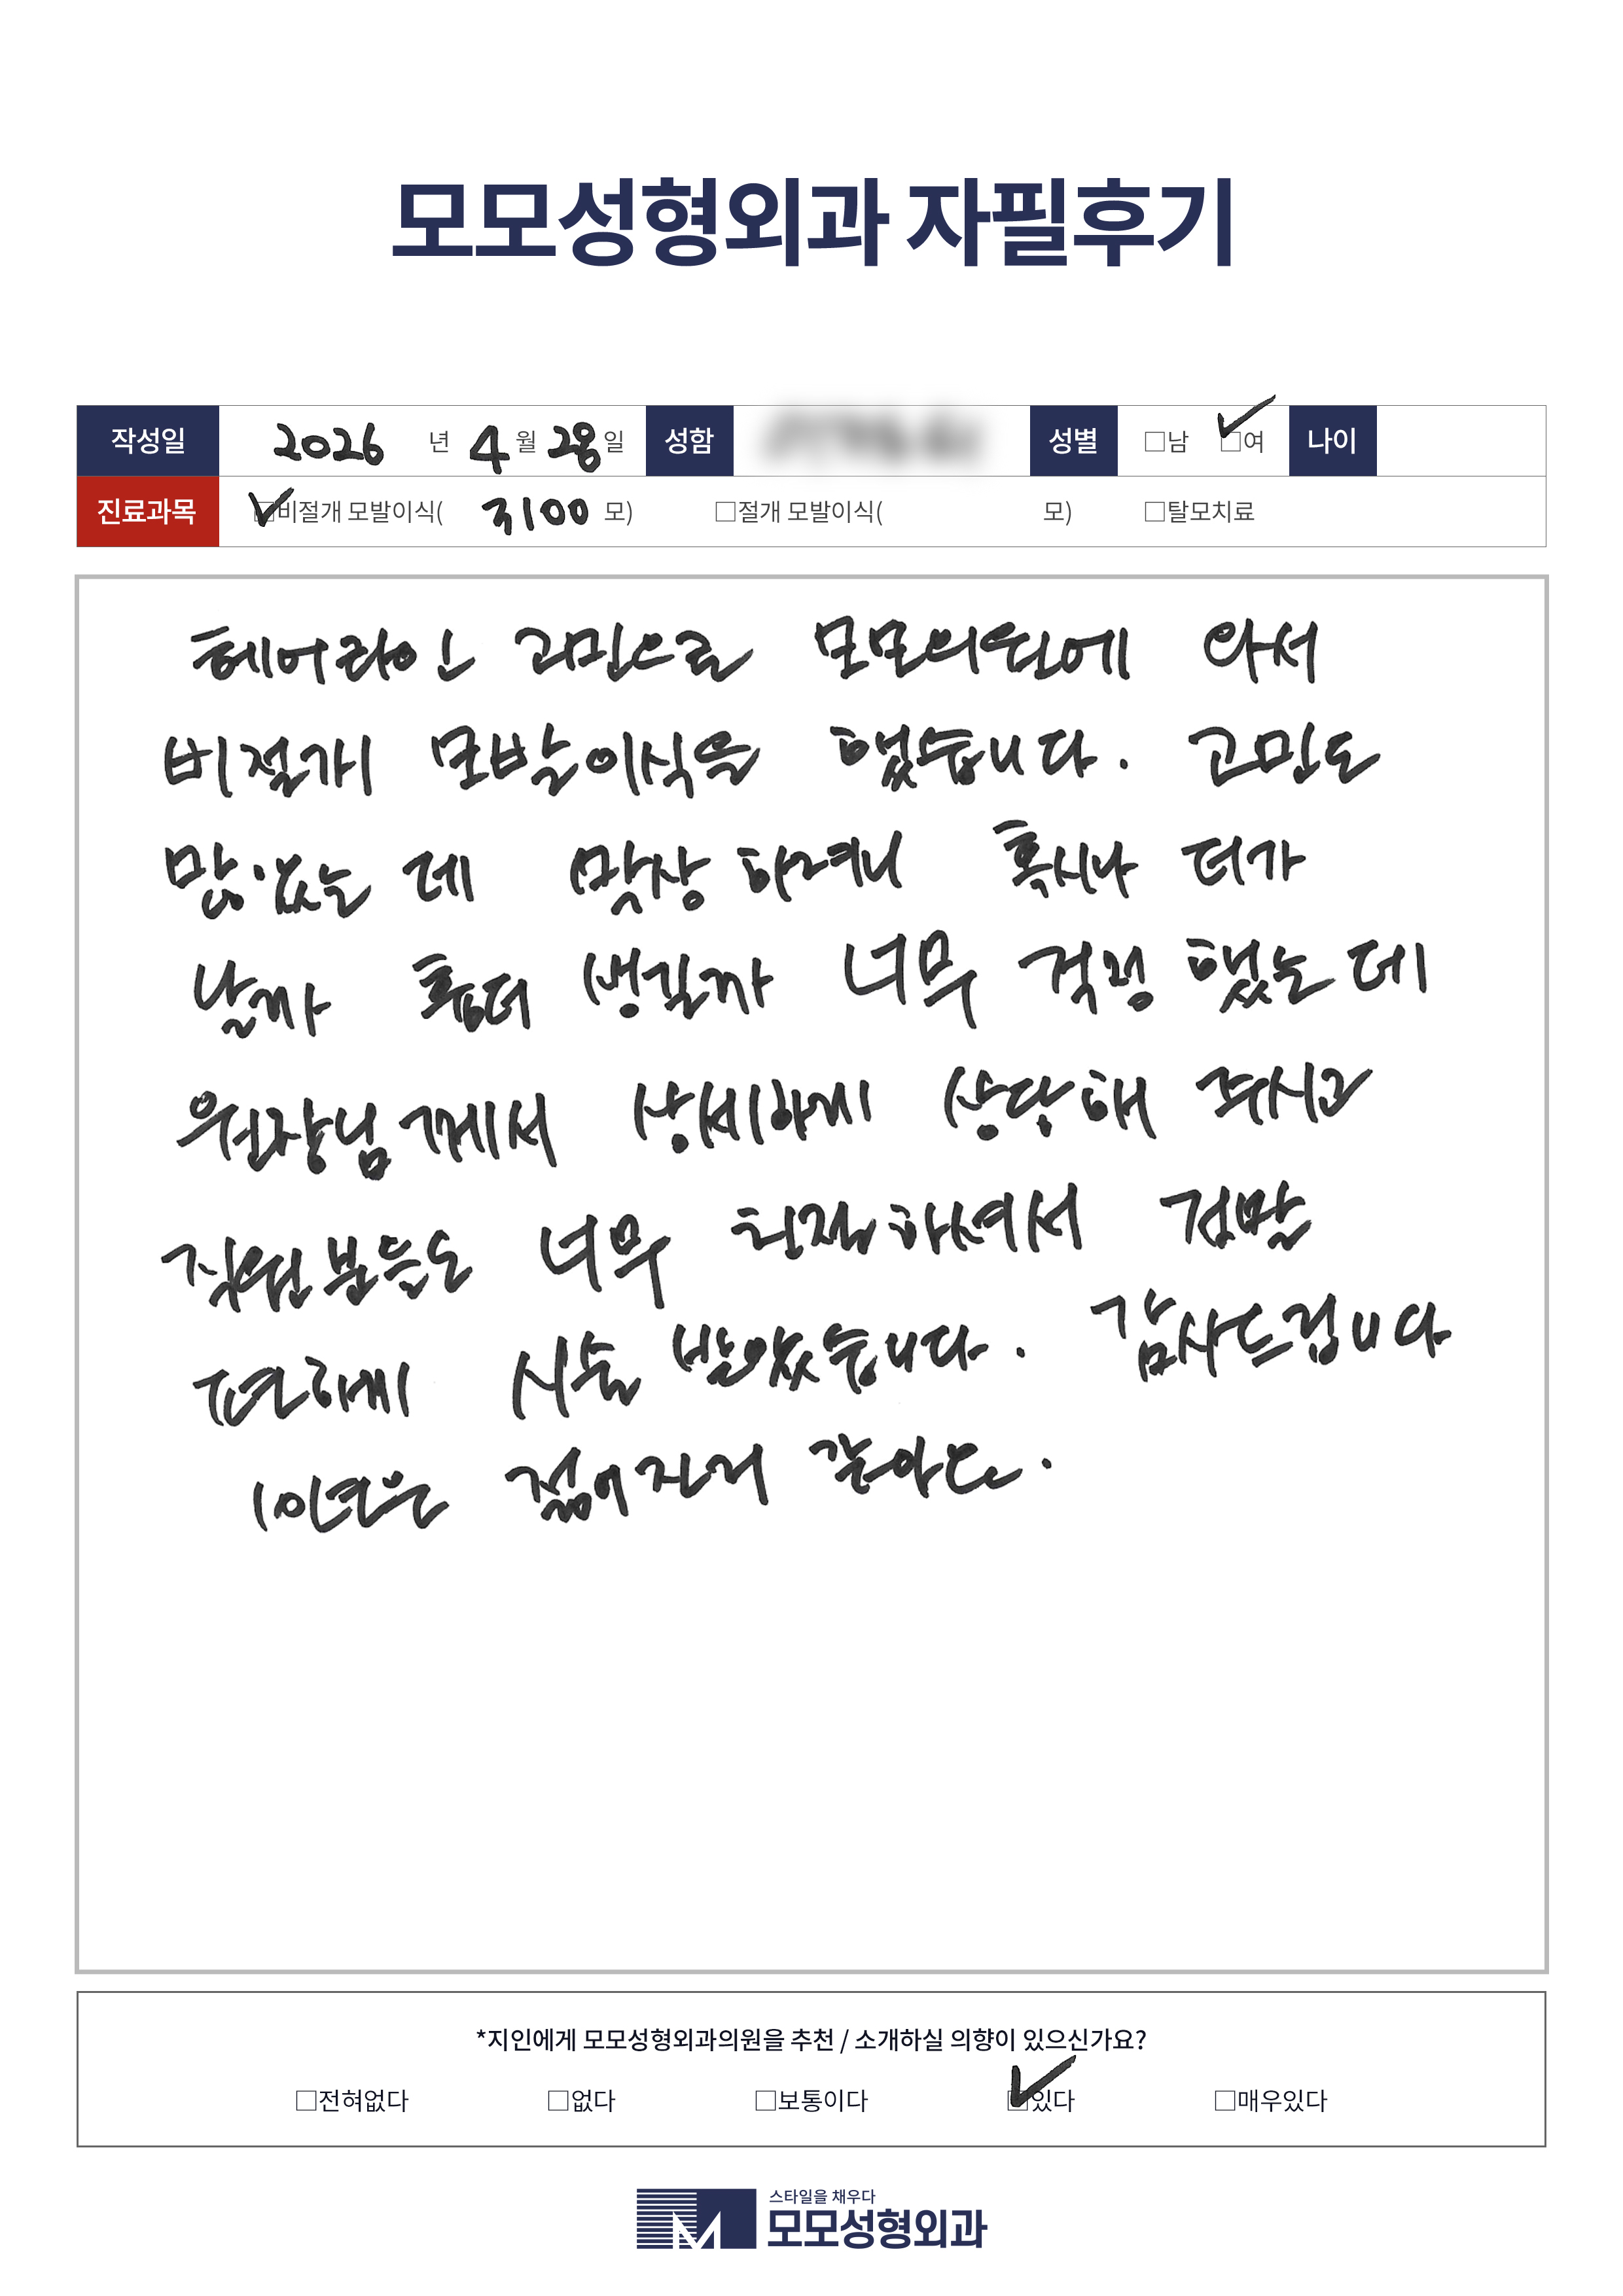 모모성형외과 자필후기
작성일 2026 년 4 월 28 일 성함 성별 □남 ☑여 나이
진료과목 ☑비절개 모발이식( 3100 모) □절개 모발이식( 모) □탈모치료
헤어라인 고민으로 모모의원에 와서
비절개 모발이식을 했습니다. 고민도
많았는데 막상 하려니 혹시나 티가
날까 흉터 생길까 너무 걱정했는데
원장님께서 상세하게 상담해 주시고
직원분들도 너무 친절하셔서 정말
편하게 시술 받았습니다. 감사드립니다
10년은 젊어진거 같아요.
*지인에게 모모성형외과의원을 추천 / 소개하실 의향이 있으신가요?
□전혀없다 □없다 □보통이다 ☑있다 □매우있다
스타일을 채우다
모모성형외과